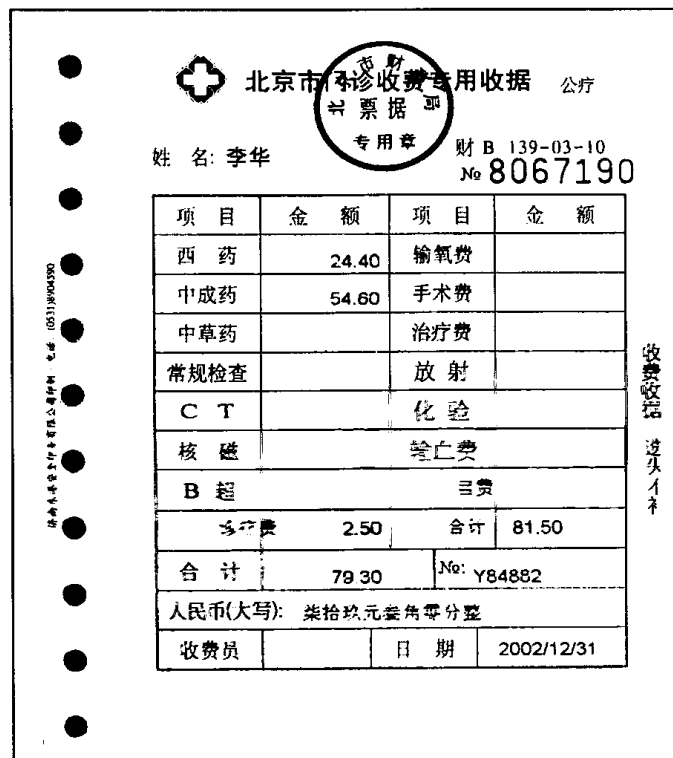 北京市门诊收费专用收据 公疗
北京市财政局
票据
专用章
姓 名: 李华
财 B 139-03-10
№ 8067190
项 目 金 额 项 目 金 额
西 药 24.40 输氧费
中成药 54.60 手术费
中草药 治疗费
常规检查 放 射
C T 化 验
核 磁 输血费
B 超 自费
诊疗费 2.50 合计 81.50
合 计 79.30 №: Y84882
人民币(大写): 柒拾玖元叁角零分整
收费员 日 期 2002/12/31
收费收据